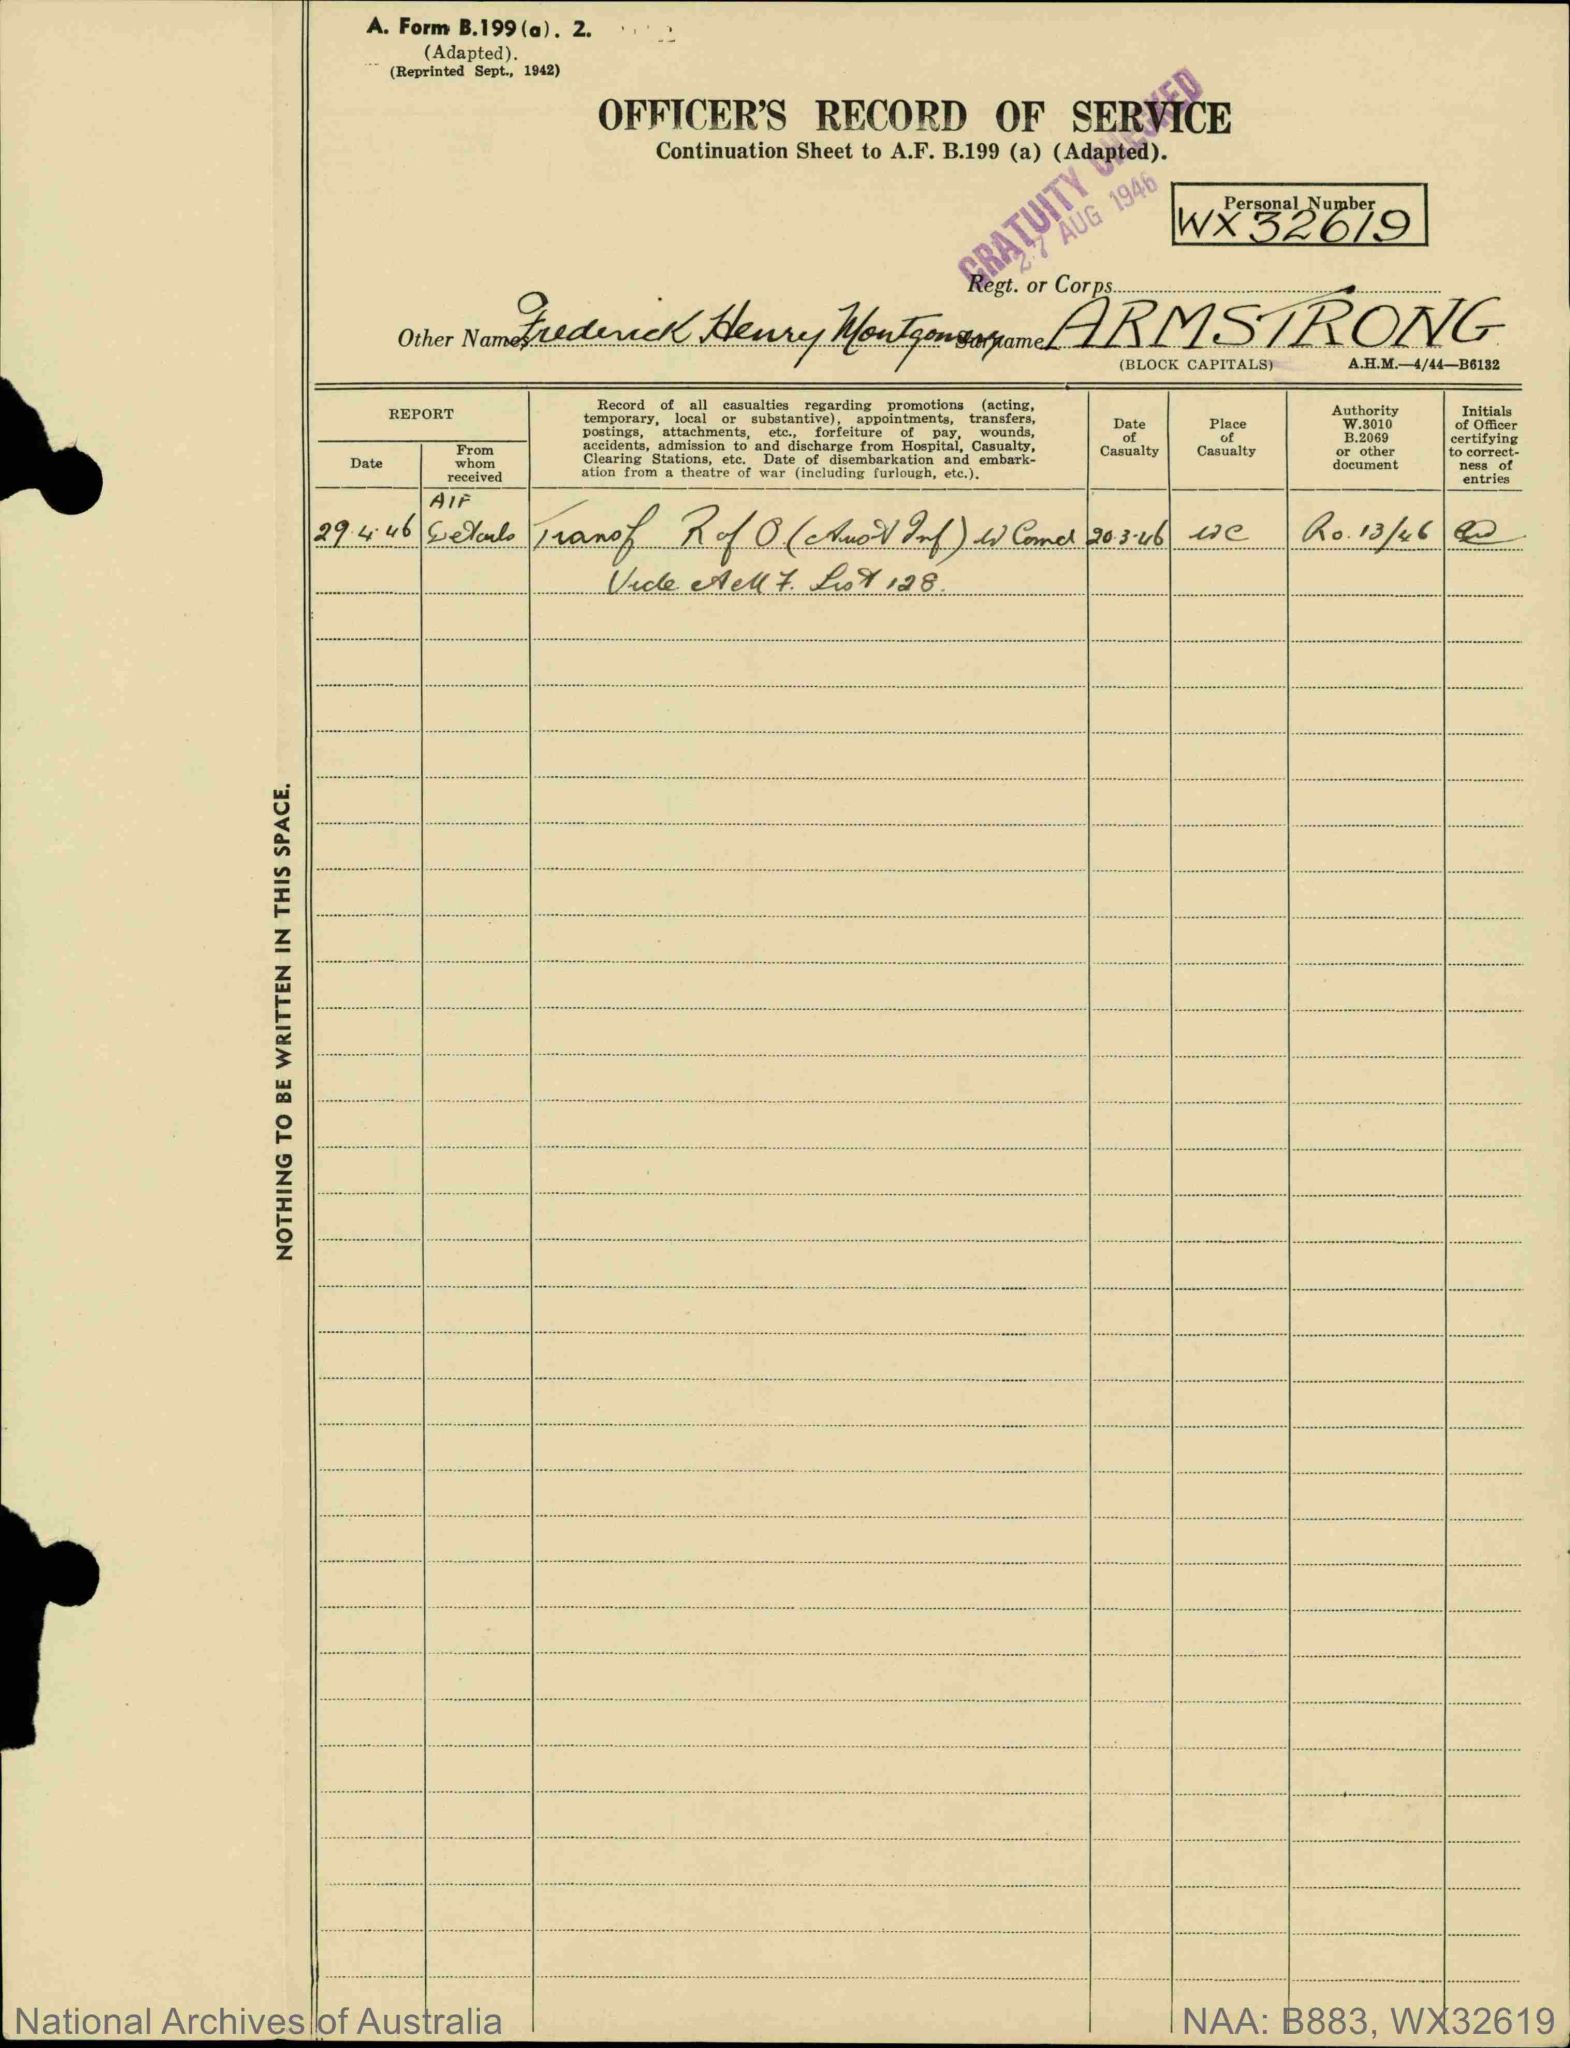 A. Form B.199(a). 2.
(Adapted).
(Reprinted Sept., 1942)
OFFICER'S RECORD OF SERVICE
Continuation Sheet to A.F. B.199 (a) (Adapted).
GRATUITY CHECKED
27 AUG 1946
Personal Number
WX32619
Regt. or Corps
Other Names Frederick Henry Montgomery Surname ARMSTRONG
(BLOCK CAPITALS) A.H.M.—4/44—B6132
REPORT
Date
From
whom
received
Record of all casualties regarding promotions (acting,
temporary, local or substantive), appointments, transfers,
postings, attachments, etc., forfeiture of pay, wounds,
accidents, admission to and discharge from Hospital, Casualty,
Clearing Stations, etc. Date of disembarkation and embark-
ation from a theatre of war (including furlough, etc.).
Date
of
Casualty
Place
of
Casualty
Authority
W.3010
B.2069
or other
document
Initials
of Officer
certifying
to correct-
ness of
entries
AIF
29.4.46 Details Transf R of O (Aust Inf) W Comd 20.3.46 WC Ro. 13/46
Vide AMF. List 128.
NOTHING TO BE WRITTEN IN THIS SPACE.
National Archives of Australia
NAA: B883, WX32619